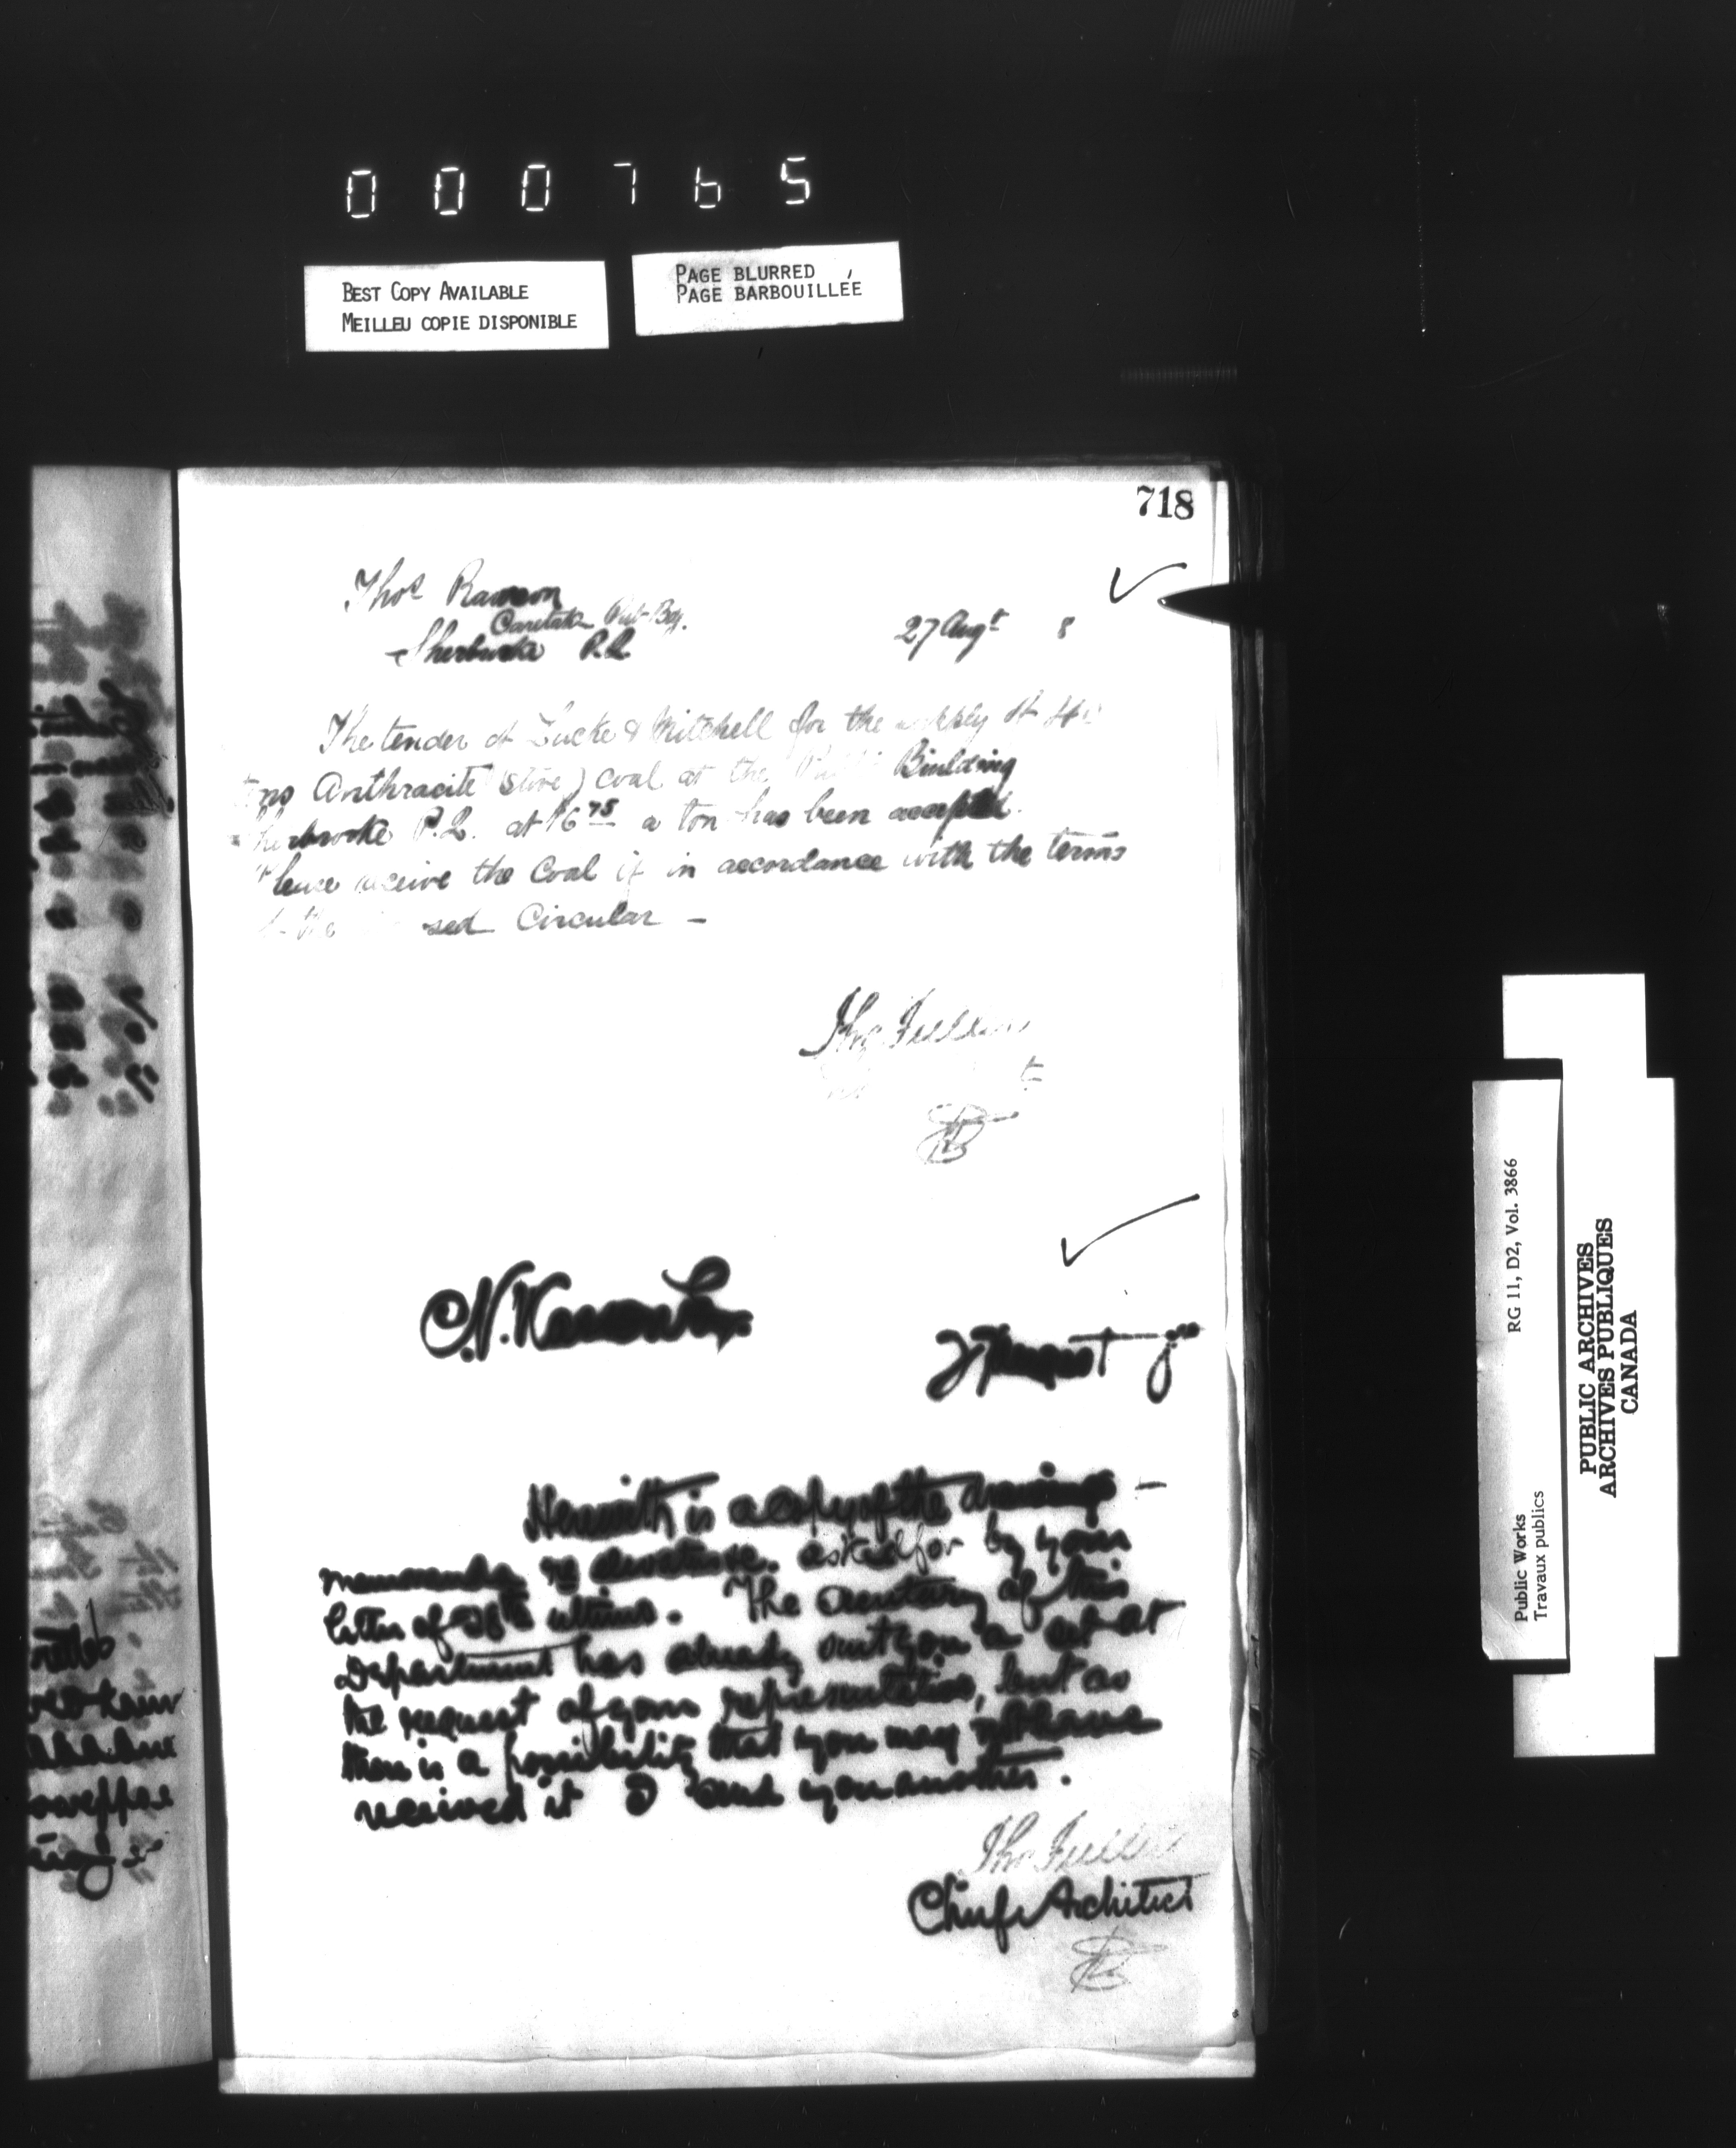 000765
BEST COPY AVAILABLE
MEILLEU COPIE DISPONIBLE
PAGE BLURRED
PAGE BARBOUILLÉE
718
Thos Rawson
Caretaker Pub Bdg.
Sherbrooke P.Q.
27 Augt 8
The tender of Lucke & Mitchell for the supply of 40
tons Anthracite (Stove) coal at the Public Building
Sherbrooke P.Q. at $6 75 a ton has been accepted.
Please receive the Coal if in accordance with the terms
of the sed Circular —
Thos Fuller
Herewith is a copy of the drawings —
asked for by your
letter of 26th ultimo. The secretary of this
Department has already sent you a set at
the request of your representative, but as
there is a possibility that you may not have
received it I send you another.
Thos Fuller
Chief Architect
RG 11, D2, Vol. 3866
Public Works
Travaux publics
PUBLIC ARCHIVES
ARCHIVES PUBLIQUES
CANADA